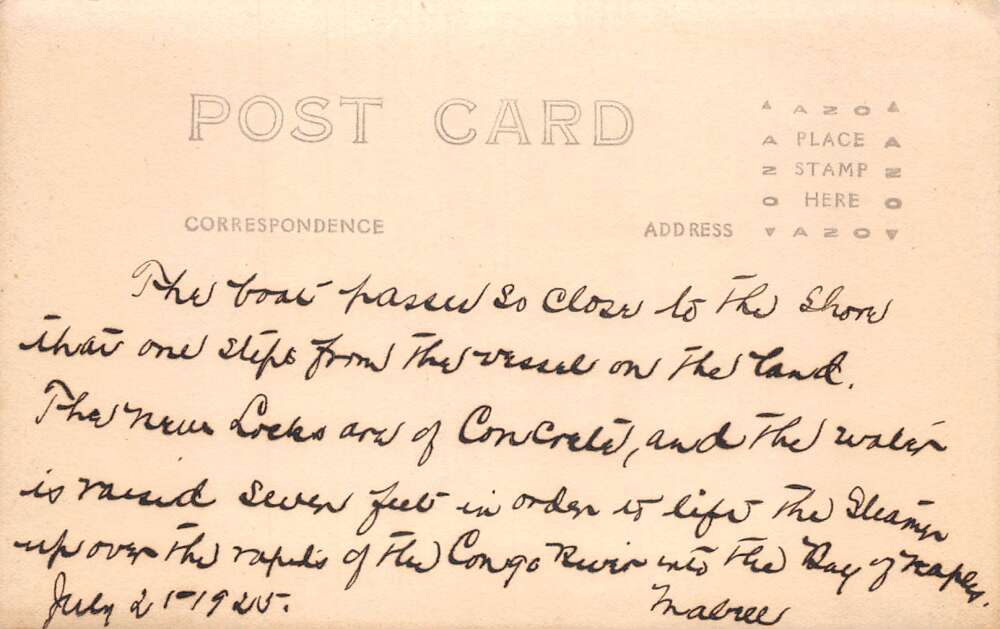 POST CARD
▲ AZO ▲
A PLACE A
Z STAMP Z
O HERE O
▼ AZO ▼
CORRESPONDENCE
ADDRESS
The boat passes so close to the shore
that one steps from the vessel on the land.
The new Locks are of Concrete, and the water
is raised seven feet in order to lift the Steamer
up over the rapids of the Congo River into the Bay of Naples.
July 21-1925.